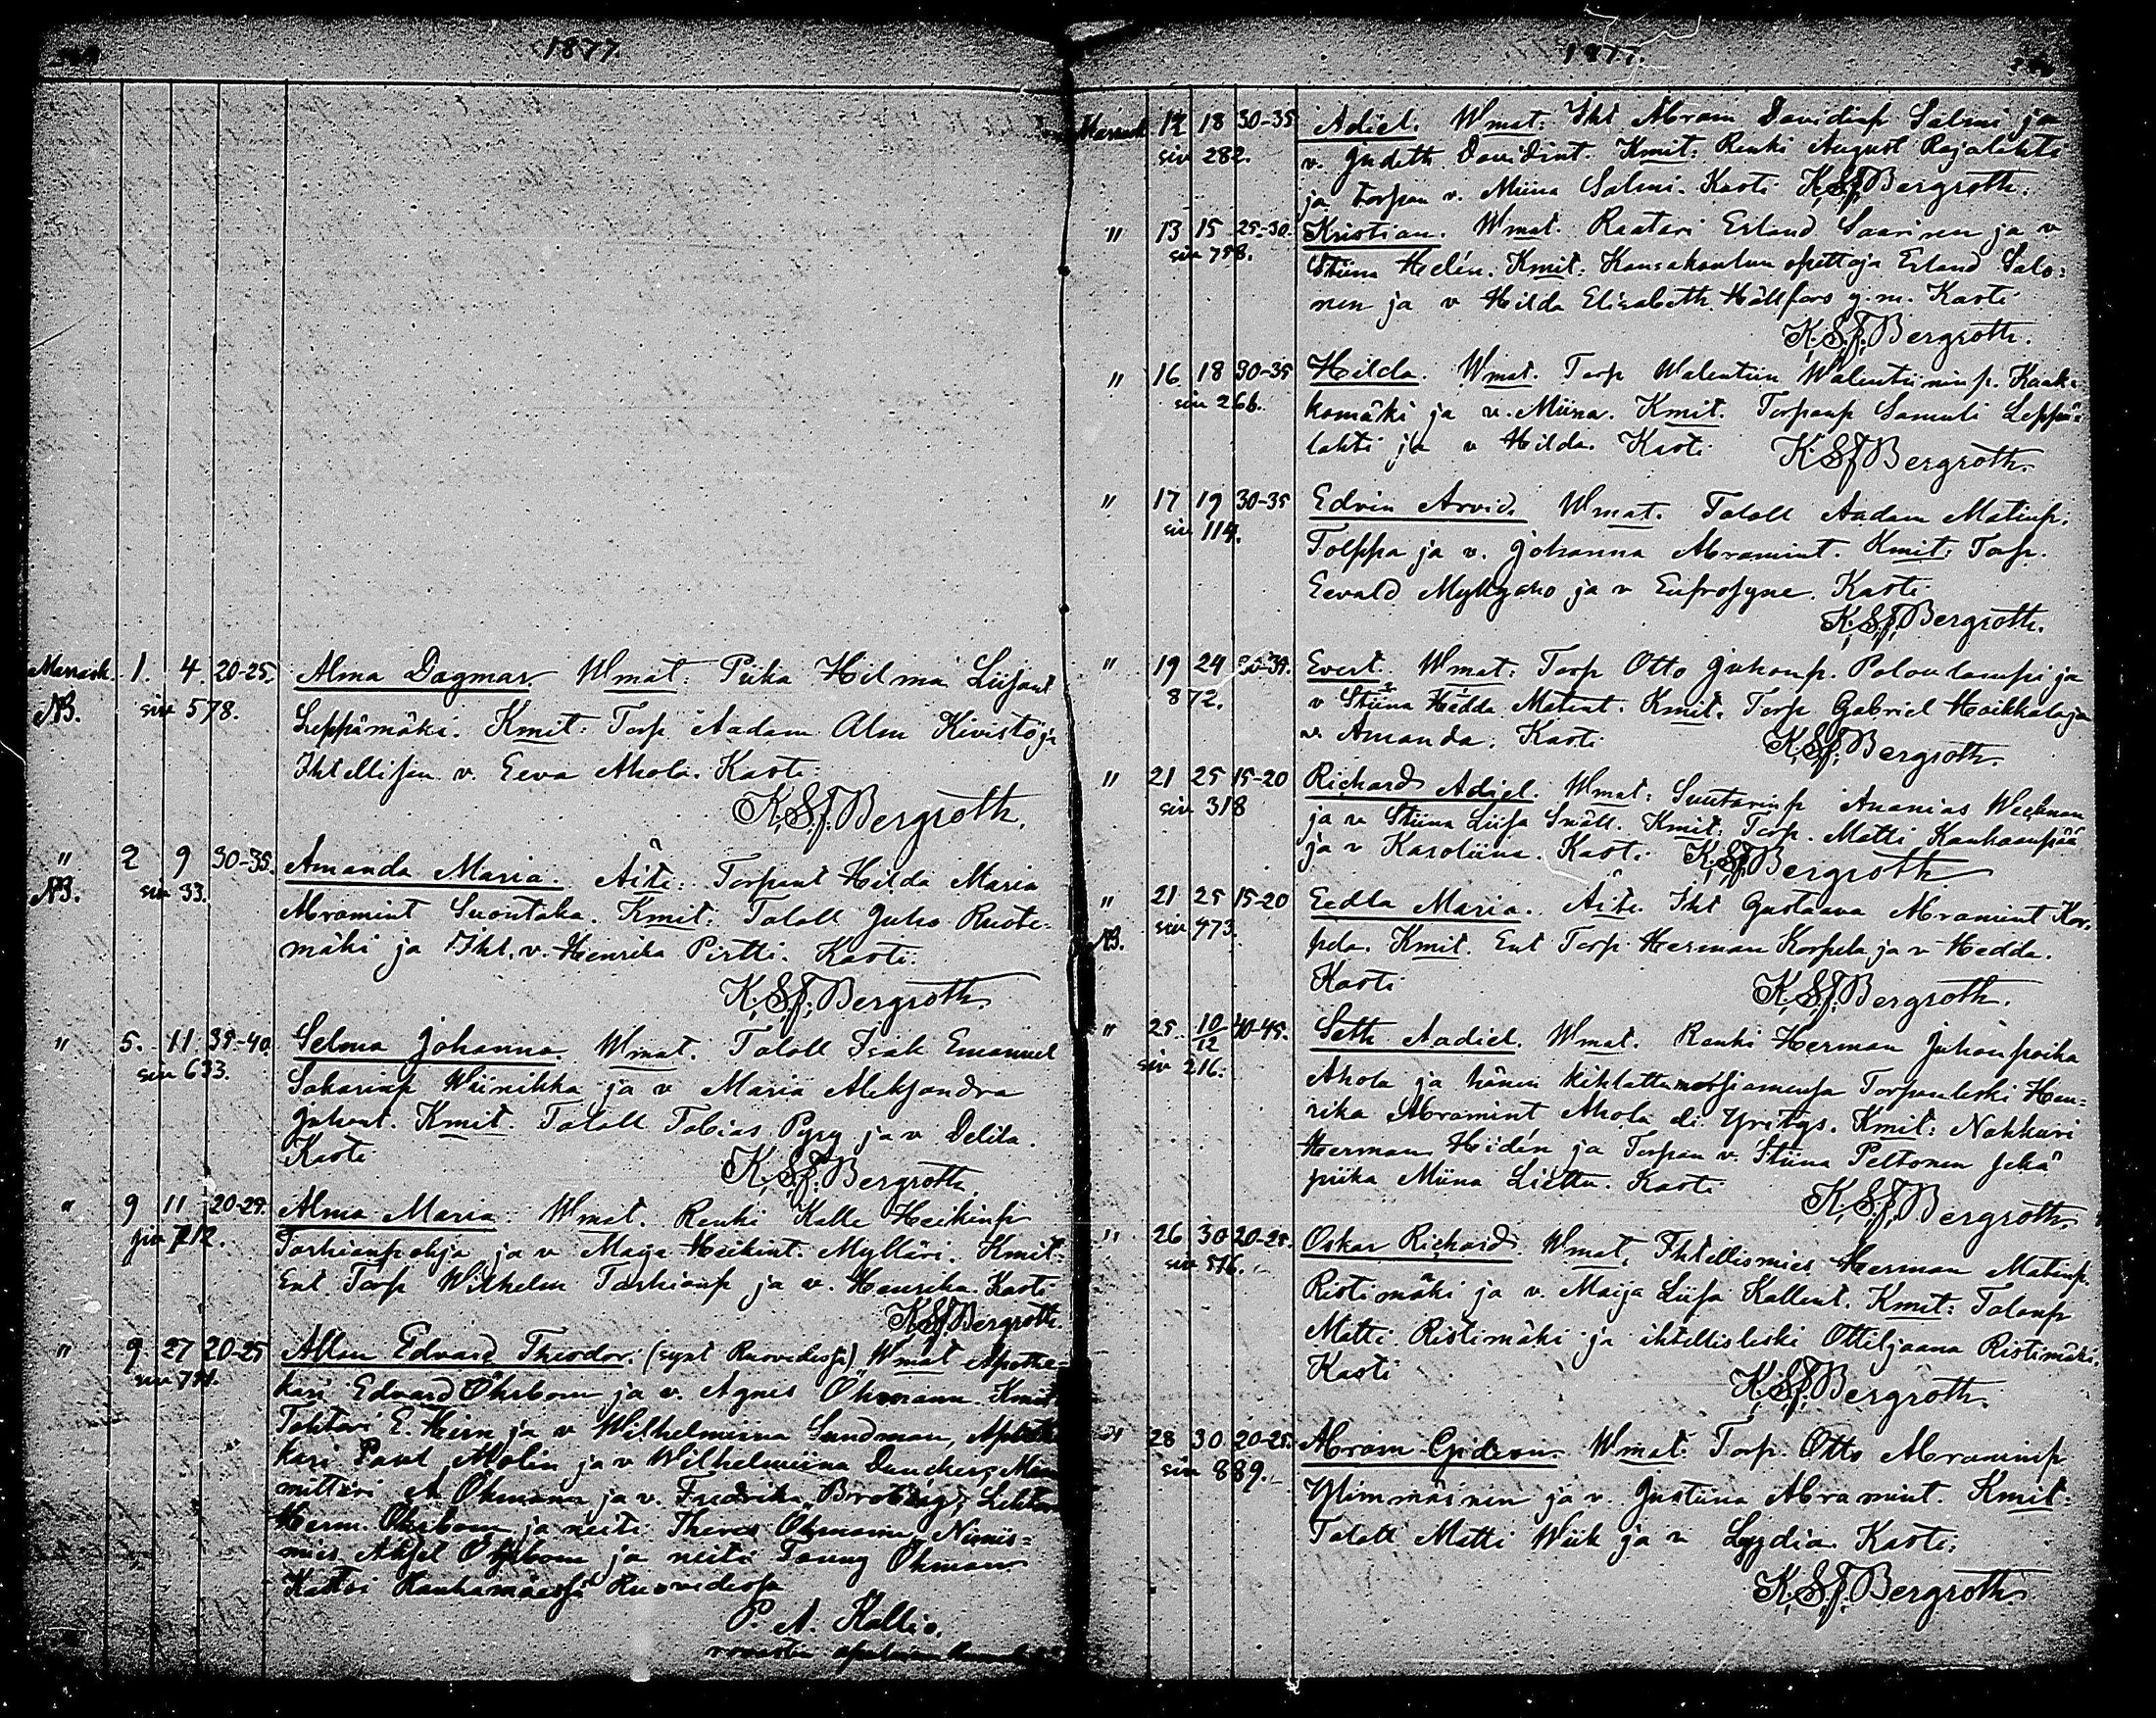 1877.
Marrask. 1. 4. 20-25. Alma Dagmar Wmat: Piika Hilma Liisant
NB. siv 578. Leppämäki. Kmit: Torp Aadam Alm Kivistö ja
Ihtellisen v. Eeva Ahola. Kasti
K.S.J. Bergroth.
" 2 9 30-35. Amanda Maria. Äiti: Torpant Hilda Maria
NB. siv 33. Abramint Suontaka. Kmit: Taloll Juho Ruote-
mäki ja Iht. v. Henrika Pirtti. Kasti.
K.S.J. Bergroth.
" 5. 11 35-40. Selma Johanna. Wmat. Taloll Isak Emanuel
siv 633. Sakarinp Wiinikka ja v Maria Aleksandra
Juhont. Kmit. Taloll Tobias Pyry ja v Delila.
Kasti
K.S.J. Bergroth
" 9 11 20-25. Alma Maria. Wmat. Renki Kalle Heikinp
siv 712. ja v Maija Heikint. Mylläri. Kmit.
Ent. Torp Wilhelm ja v. Henrika. Kasti
K.S.J. Bergroth.
" 9 27 20-25 Allan Edvard Theodor. (synt Ruovedesä) Wmat Apothe-
kari Edvard Öhrbom ja v. Agnes Öhmann. Kmit
Tohtori E. Hein ja v Wilhelmiina Sundman,
kari Paul Molin ja v Wilhelmiina
mittari A Öhmann ja v. Fredrika
Herm. Öhrbom ja neiti Öhmann, Nimis-
mies Aksel Öhrbom ja neiti Fanny Öhman
Kastoi Ruovedesä
P. A. Kallio.
1877.
Marrask 12 18 30-35 Adiel. Wmat: Iht Abram Davidinp Salmi ja
siv 282. v. Judith Davidint. Kmit: Renki August Rajalahti
ja torpan v. Miina Salmi. Kasti K.S.J. Bergroth.
" 13 15 25-30. Kristian. Wmat. Raatari Erland Saarinen ja v
siv 798. Stiina Helén. Kmit. Kansakoulun opettaja Erland Salo-
nen ja v Hilda Elisabeth Hällfors y.m. Kasti
K.S.J. Bergroth.
" 16 18 30-35 Hilda. Wmat. Torp Walentin Walentininp. Kauk-
siv 266. komäki ja v. Miina. Kmit. Torpanp Samuli Leppä-
lahti ja v Hilda. Kasti K.S.J. Bergroth.
" 17 19 30-35 Edvin Arvid. Wmat. Taloll Aadam Matinp.
siv 114. Tolppa ja v. Johanna Abramint. Kmit: Torp.
Eevald Myllyaho ja v Eufrosyne. Kasti
K.S.J. Bergroth.
" 19 24 30-35. Evert. Wmat: Torp Otto Juhonp. Palonlampi ja
872. v Stiina Hedda Matint. Kmit. Torp Gabriel Haikkala ja
v Amanda. Kasti K.S.J. Bergroth.
" 21 25 15-20 Richard Adiel. Wmat: Suutarinp Ananias Weckman
siv 318 ja v Stiina Liisa Snäll. Kmit: Torp. Matti Kanhaanpää
ja v Karoliina. Kasti K.S.J. Bergroth
" 21 25 15-20 Eedla Maria. Äiti. Iht Gustaava Abramint Kor-
NB. siv 473. pela. Kmit. Ent Torp Herman Korpela ja v Hedda.
Kasti K.S.J. Bergroth.
" 25 10/12 40-45. Seth Aadiel. Wmat. Renki Herman Juhonpoika
siv 216. Ahola ja hänen kihlattu morsiamensa Torpanleski Hen-
rika Abramint Ahola Yritys. Kmit: Nahkuri
Herman Hidén ja Torpan v. Stiina Peltonen sekä
piika Miina Liettu. Kasti K.S.J. Bergroth.
" 26 30 20-25. Oskar Richard. Wmat. Ihtellismies Herman Matinp.
siv 576. Ristimäki ja v. Maija Liisa Kallent. Kmit: Talonp
Matti Ristimäki ja ihtellisleski Ottiljaana Ristimäki.
Kasti K.S.J. Bergroth.
" 28 30 20-25. Abram Gideon. Wmat: Torp. Otto Abraminp
siv 889. Ylimmäinen ja v. Justiina Abramint. Kmit:
Taloll Matti Wiik ja v Lyydia. Kasti.
K.S.J. Bergroth.